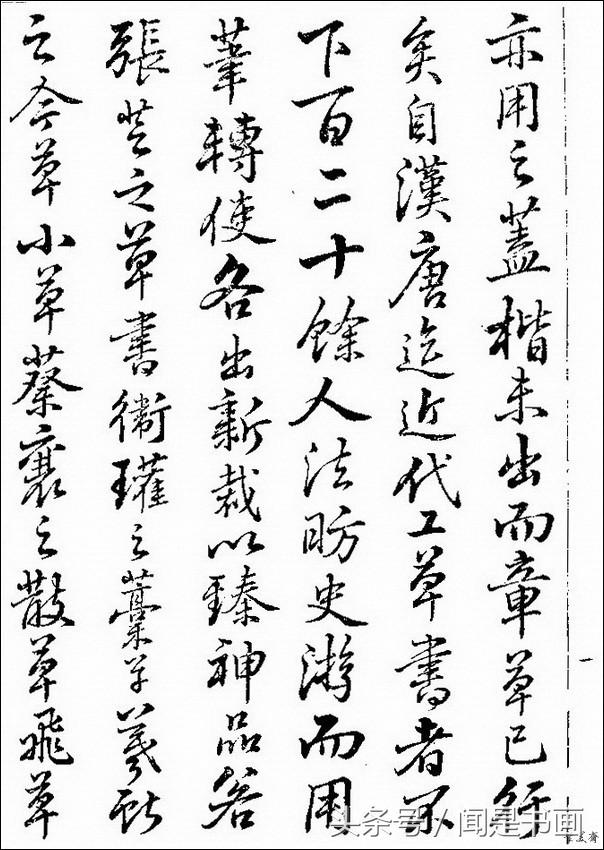 亦用之蓋楷未出而章草已行
矣自漢唐迄近代工草書者不
下百二十餘人法昉史游而用
筆轉使各出新裁以臻神品若
張芝之草書衛瓘之藁草羲獻
之今草小草蔡襄之散草飛草
一
头条号/闻是书画